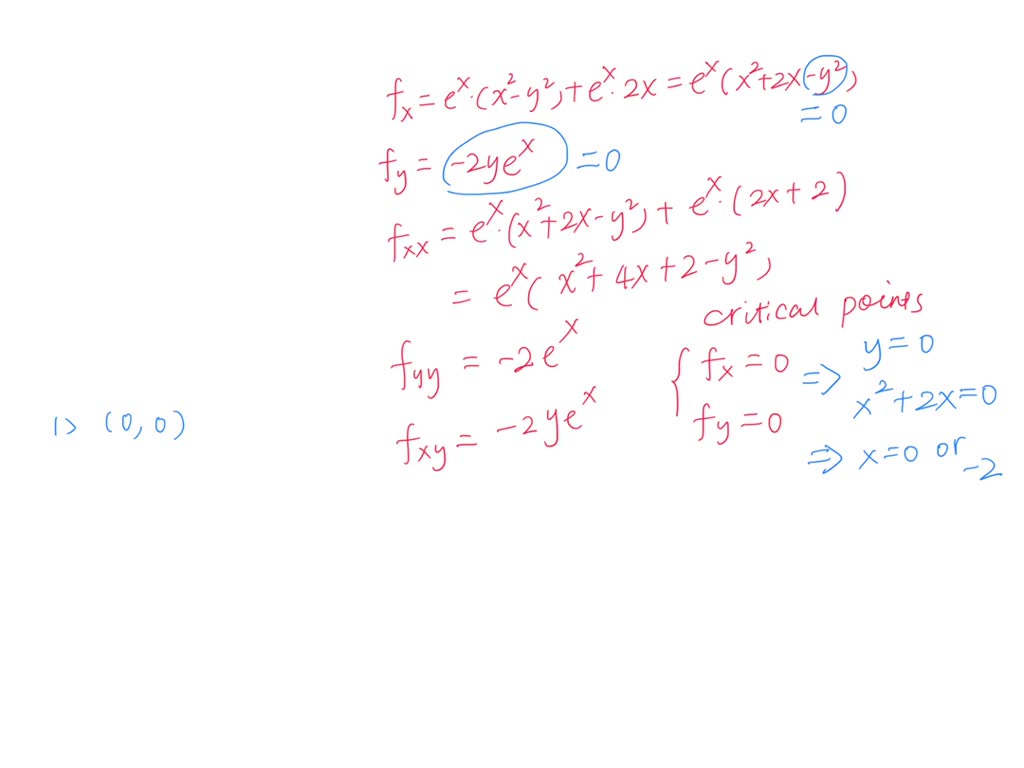 fx = eˣ·(x²-y²) + eˣ·2x = eˣ(x²+2x-y²)
= 0
fy = -2yeˣ = 0
fxx = eˣ·(x²+2x-y²) + eˣ·(2x+2)
= eˣ(x²+4x+2-y²)
critical points
fyy = -2eˣ
{ fx = 0 ⇒ y = 0
x²+2x=0
1> (0,0)
fxy = -2yeˣ
fy = 0
⇒ x=0 or -2